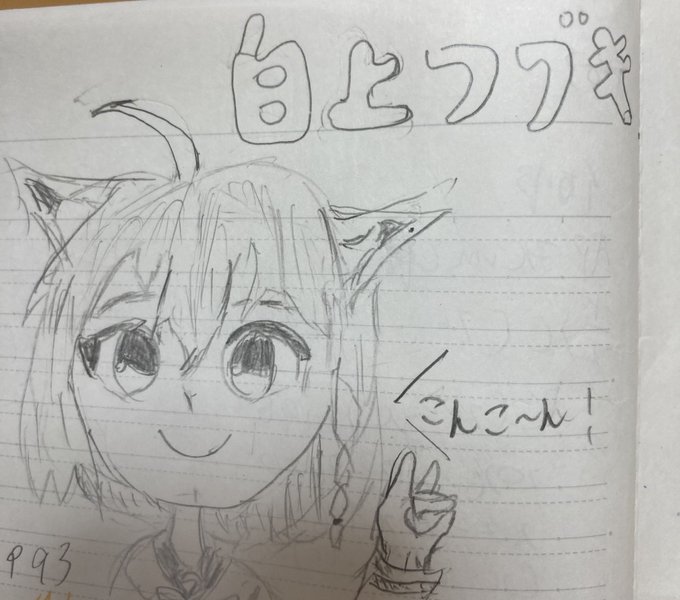 白上フブキ
こんこ〜ん!
P93